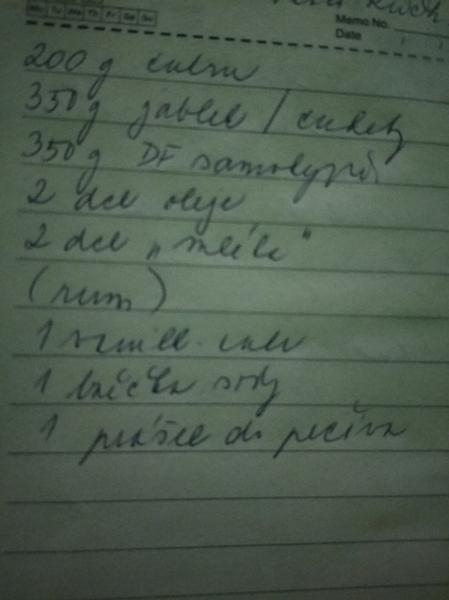 Mo Tu We Th Fr Sa Su
Memo No.
Date / /
200 g cukru
350 g jablek / cukety
350 g DF samokypř.
2 dcl oleje
2 dcl „mléka"
(rum)
1 vanill. cukr
1 lžička sody
1 prášek do pečiva